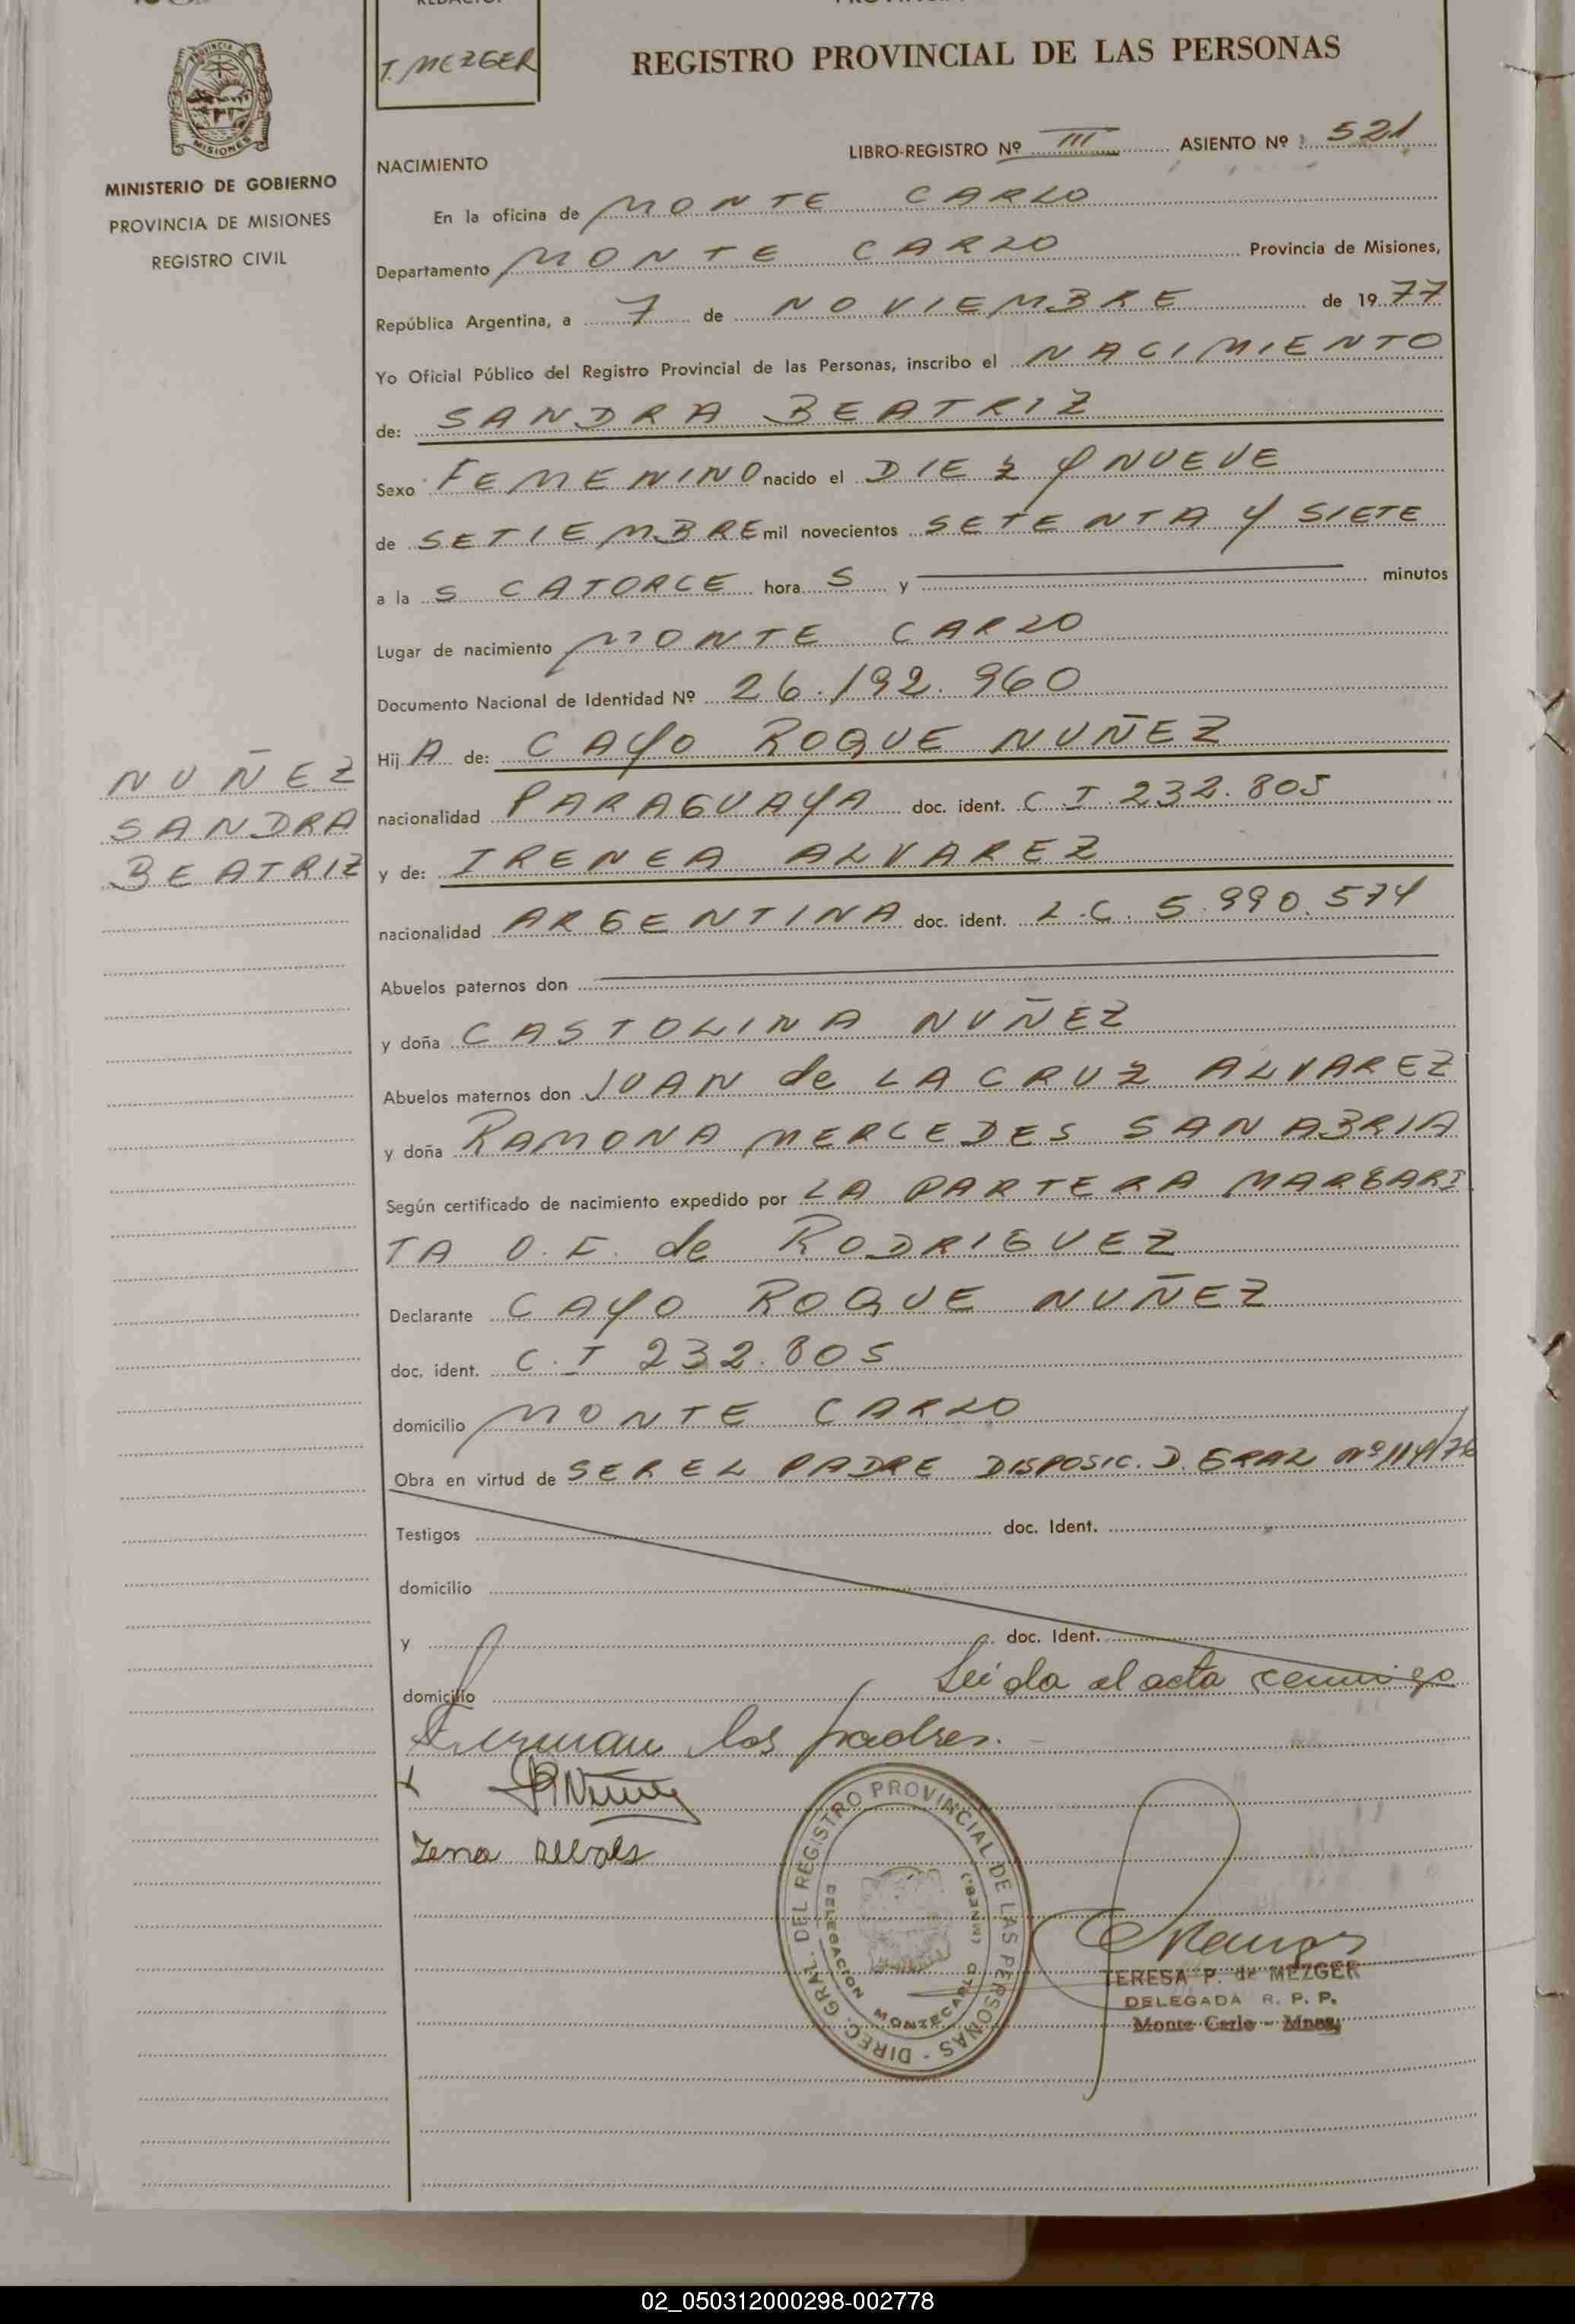 T. MEZGER
REGISTRO PROVINCIAL DE LAS PERSONAS
PROVINCIA DE MISIONES
MINISTERIO DE GOBIERNO
PROVINCIA DE MISIONES
REGISTRO CIVIL
LIBRO-REGISTRO Nº III ASIENTO Nº 521
NACIMIENTO
En la oficina de MONTE CARLO
Departamento MONTE CARLO Provincia de Misiones,
República Argentina, a 7 de NOVIEMBRE de 1977
Yo Oficial Público del Registro Provincial de las Personas, inscribo el NACIMIENTO
de: SANDRA BEATRIZ
Sexo FEMENINO nacido el DIEZ Y NUEVE
de SETIEMBRE mil novecientos SETENTA Y SIETE
a la S CATORCE hora S y minutos
Lugar de nacimiento MONTE CARLO
Documento Nacional de Identidad Nº 26.192.960
Hij A de: CAYO ROQUE NUÑEZ
NUÑEZ
SANDRA
BEATRIZ
nacionalidad PARAGUAYA doc. ident. C I 232.805
y de: IRENEA ALVAREZ
nacionalidad ARGENTINA doc. ident. L.C. 5.990.574
Abuelos paternos don
y doña CASTOLINA NUÑEZ
Abuelos maternos don JUAN de LA CRUZ ALVAREZ
y doña RAMONA MERCEDES SANABRIA
Según certificado de nacimiento expedido por LA PARTERA MARGARI
TA O. F. de RODRIGUEZ
Declarante CAYO ROQUE NUÑEZ
doc. ident. C. I 232.805
domicilio MONTE CARLO
Obra en virtud de SER EL PADRE DISPOSIC. D. GRAL Nº 114/76
Testigos doc. Ident.
domicilio
y doc. Ident.
domicilio Leida el acta
los padres.
DIREC. GRAL. DEL REGISTRO PROVINCIAL DE LAS PERSONAS
DELEGACION MONTECARLO (MNES.)
TERESA P. de MEZGER
DELEGADA R. P. P.
Monte Carlo - Mnes.
02_050312000298-002778